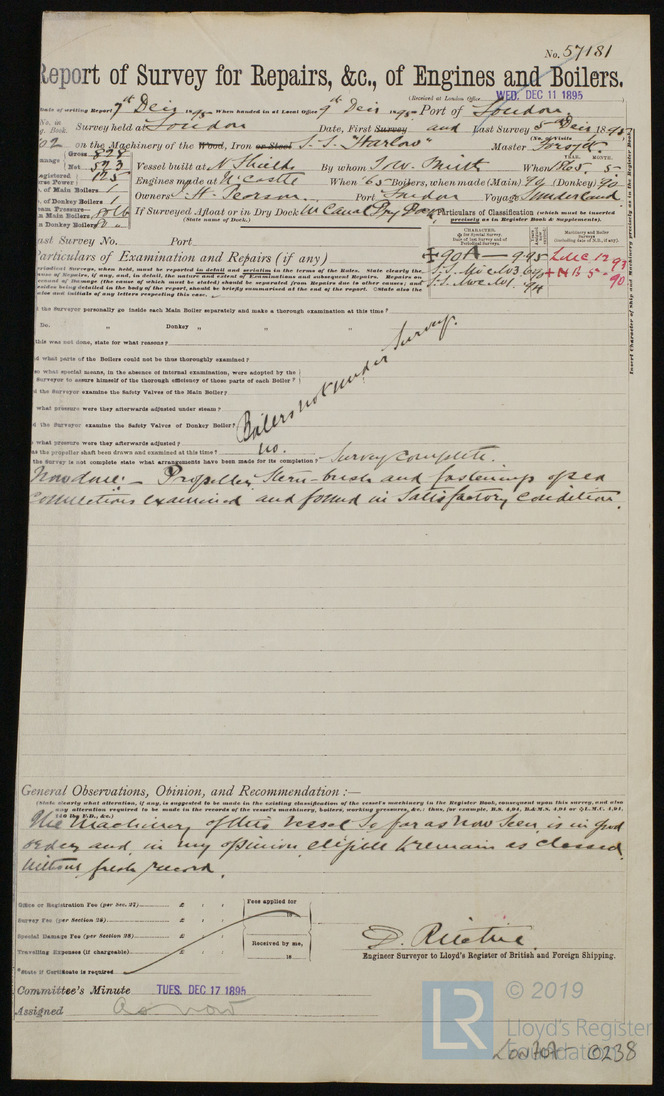 No. 57181
Report of Survey for Repairs, &c., of Engines and Boilers.
(Received at London Office WED. DEC 11 1895)
Date of writing Report 7th Decr 1895 When handed in at Local Office 9th Decr 1895 Port of London
No. in Reg. Book Survey held at London Date, First Survey and Last Survey 5th Decr 1895
(No. of Visits
on the Machinery of the Wood, Iron or Steel S.S. "Harlow" Master Forsyth
Tonnage Gross 828 Net 523
Vessel built at N. Shields By whom T. & W. Smith When 1865 YEAR. MONTH. 5
Registered Horse Power 125
Engines made at N'Castle When '65 Boilers, when made (Main) 90 (Donkey) 90
No. of Main Boilers 1
Owners H. Pearson Port London Voyage Sunderland
No. of Donkey Boilers 1
Steam Pressure in Main Boilers
in Donkey Boilers
If Surveyed Afloat or in Dry Dock Mc Canal Dry Dock
(State name of Dock.)
Particulars of Classification (which must be inserted precisely as in Register Book & Supplements).
Last Survey No. Port
CHARACTER.
Machinery and Boiler Surveys
90A 9.95 LMC 12.93
+NB 5.90
Particulars of Examination and Repairs (if any)
Periodical Surveys, when held, must be reported in detail and seriatim in the terms of the Rules. State clearly the
Did the Surveyor personally go inside each Main Boiler separately and make a thorough examination at this time?
Do. Donkey " " "
If this was not done, state for what reasons?
And what parts of the Boilers could not be thus thoroughly examined?
Also what special means, in the absence of internal examination, were adopted by the
Surveyor to assure himself of the thorough efficiency of those parts of each Boiler?
Did the Surveyor examine the Safety Valves of the Main Boiler?
To what pressure were they afterwards adjusted under steam?
Did the Surveyor examine the Safety Valves of Donkey Boiler?
To what pressure were they afterwards adjusted?
Boilers not under Survey.
Has the propeller shaft been drawn and examined at this time? no.
If the Survey is not complete state what arrangements have been made for its completion? Survey complete.
Now done:– Propeller, Stern-bush and fastenings of sea
Connections examined and found in Satisfactory Condition.
General Observations, Opinion, and Recommendation :—
(State clearly what alteration, if any, is suggested to be made in the existing classification of the vessel's machinery in the Register Book, consequent upon this survey, and also
any alteration required to be made in the records of the vessel's machinery, boilers, working pressures, &c.: thus, for example, B.S. 4,94, B.&M.S. 4,94 or L.M.C. 4,94,
The Machinery of this Vessel So far as now Seen, is in good
order and in my opinion eligible to remain as classed
Without fresh record.
Office or Registration Fee (per Sec. 27) £ : :
Survey Fee (per Section 28) £ : :
Special Damage Fee (per Section 28) £ : :
Travelling Expenses (if chargeable) £ : :
Fees applied for
18
Received by me,
18
*State if Certificate is required
D. Ritchie.
Engineer Surveyor to Lloyd's Register of British and Foreign Shipping.
Committee's Minute TUES. DEC 17 1895
Assigned as now
LR
© 2019
Lloyd's Register
Foundation
0238
Insert Character of Ship and Machinery precisely as in the Register Book.